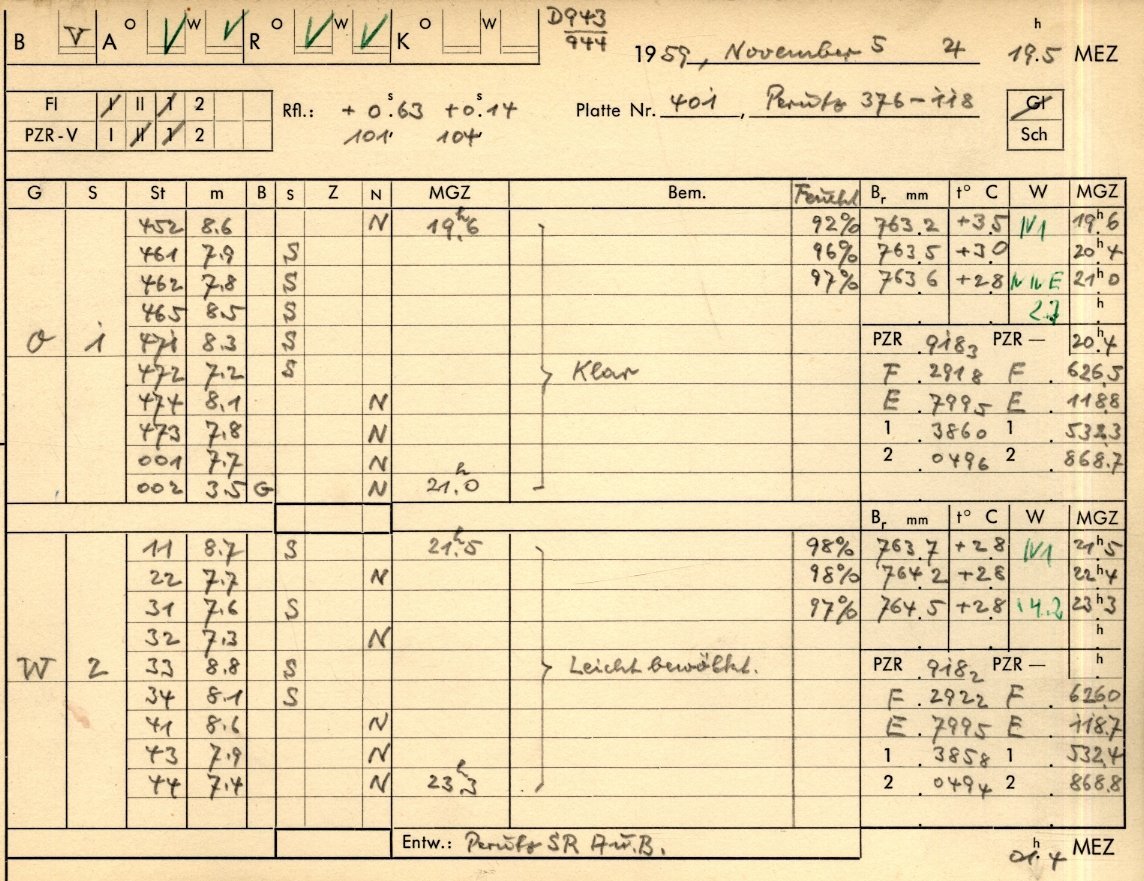 B V A O W R O W K O W D943
944
1959, November 5 4 19.5 h MEZ
FI I II 1 2 Rfl.: + 0.63 s +0.14 s Platte Nr. 401, Perutz 376-118 Gl
PZR-V I II 1 2 101' 104' Sch
G S St m B S Z N MGZ Bem. Feucht Br mm t° C W MGZ
452 8.6 N 19h.6 92% 763.2 +3.5 N1 19h.6
461 7.9 S 96% 763.5 +3.0 20h.4
462 7.8 S 97% 763.6 +2.8 NNE 21h.0
465 8.5 S 2.7 h
O 1 471 8.3 S PZR .9183 PZR – 20h.4
472 7.2 S Klar F .2918 F 626.5
474 8.1 N E .7995 E 118.8
473 7.8 N 1 .3860 1 532.3
001 7.7 N 2 .0496 2 868.7
002 3.5 G N 21h.0
Br mm t° C W MGZ
11 8.7 S 21h.5 98% 763.7 +2.8 N1 21h.5
22 7.7 N 98% 764.2 +2.8 22h.4
31 7.6 S 97% 764.5 +2.8 14.2 23h.3
32 7.3 N h
W 2 33 8.8 S Leicht bewölkt. PZR .9182 PZR – h
34 8.1 S F .2922 F 626.0
41 8.6 N E .7995 E 118.7
43 7.9 N 1 .3858 1 532.4
44 7.4 N 23h.3 2 .0494 2 868.8
Entw.: Perutz SR A u. B. 01h.4 MEZ